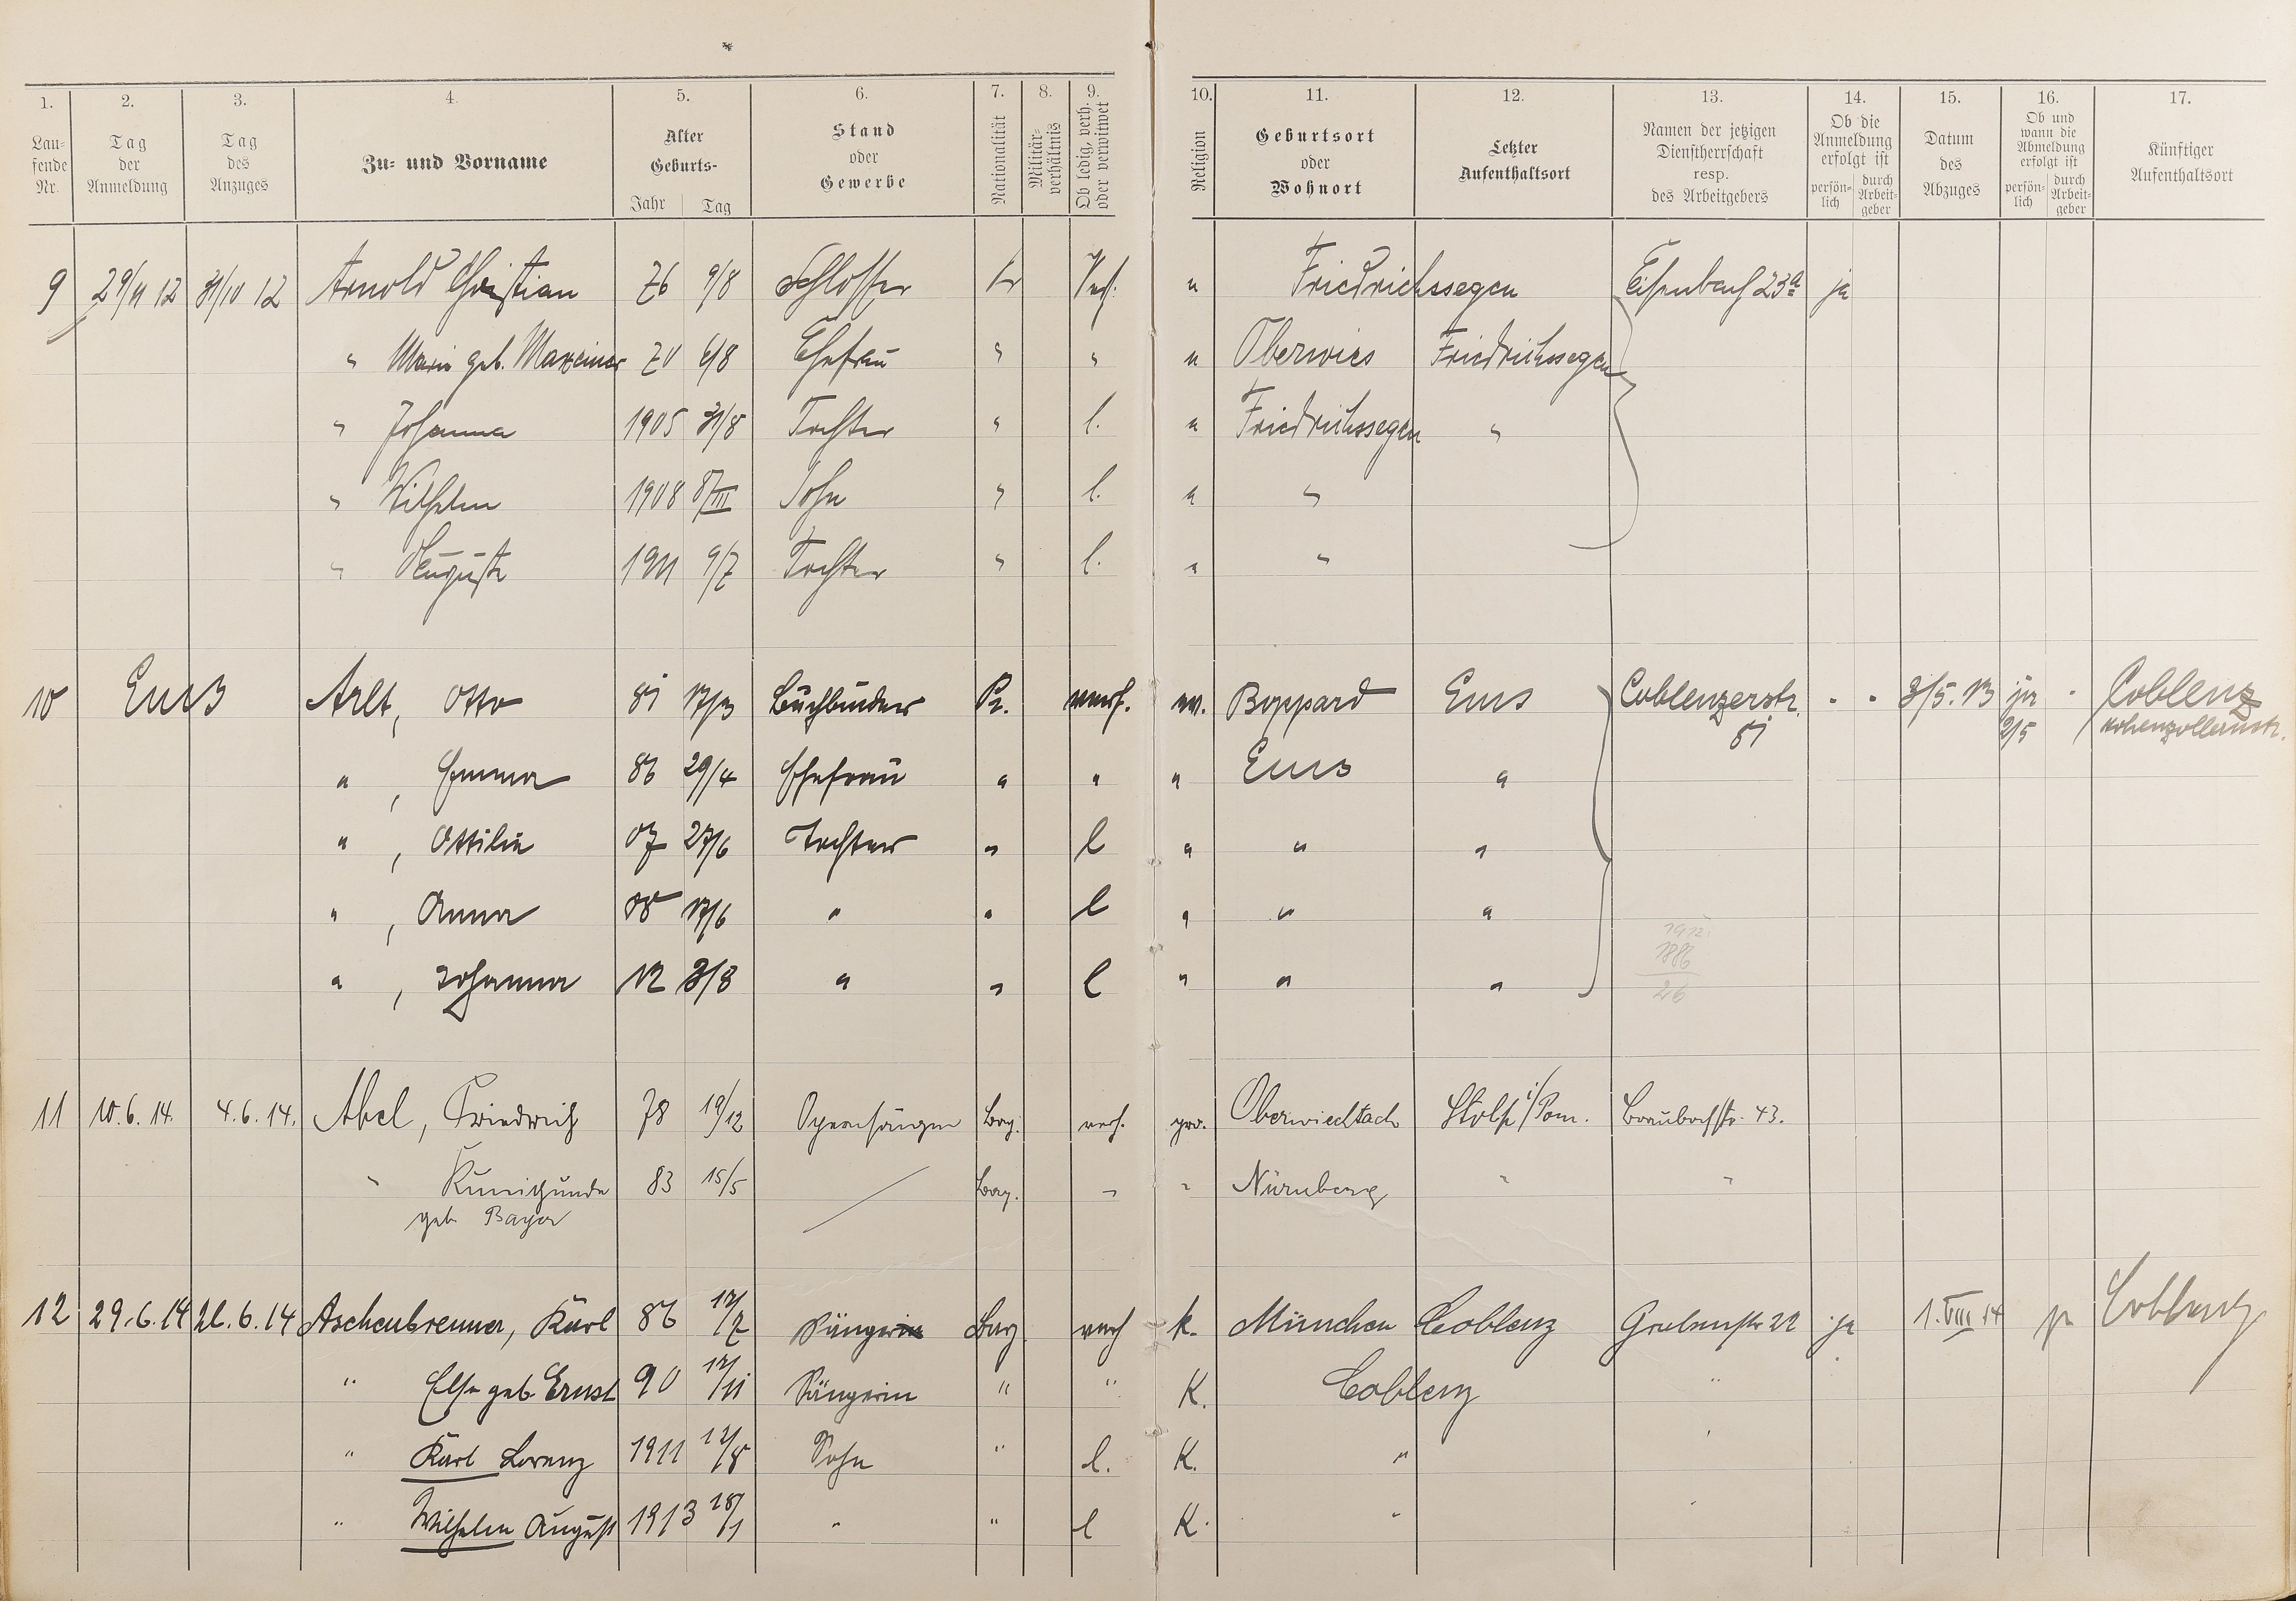 1. 2. 3. 4. 5. 6. 7. 8. 9. 10. 11. 12. 13. 14. 15. 16. 17.
Lau-fende Nr. Tag der Anmeldung Tag des Anzuges Zu- und Vorname Alter Geburts- Jahr Tag Stand oder Gewerbe Nationalität Militär-verhältnis Ob ledig, verh. oder verwitwet Religion Geburtsort oder Wohnort Letzter Aufenthaltsort Namen der jetzigen Dienstherrschaft resp. des Arbeitgebers Ob die Anmeldung erfolgt ist persön-lich durch Arbeit-geber Datum des Abzuges Ob und wann die Abmeldung erfolgt ist persön-lich durch Arbeit-geber Künftiger Aufenthaltsort
9 29/11 12 31/10 12 Arnold Christian 76 9/8 Schlosser Pr Verh. " Friedrichssegen 23a ja
" Marie geb. Maxeiner 70 6/8 Ehefrau " " " Oberwies Friedrichssegen
" Johanna 1905 31/8 Tochter " l. " Friedrichssegen "
" Wilhelm 1908 8/III Sohn " l. " "
" Auguste 1911 9/7 Tochter " l. " "
10 Ems Arlt, Otto 81 17/3 Buchbinder Pr. verh. ev. Boppard Ems Coblenzerstr. 81 - - 3/5. 13 ja 2/5 - Coblenz Hohenzollernstr.
" , Emma 86 29/4 Ehefrau " " " Ems "
" , Ottilie 07 27/6 Tochter " l " " "
" , Anna 08 17/6 " " l " " "
1912
1886
26
" , Johanna 12 3/8 " " l " " "
11 10.6.14. 4.6.14. Abel, Friedrich 78 19/12 Opernsänger Bay. verh. pro. Oberviechtach Stolp i/Pom. Braubachstr. 43.
" Kunigunde 83 15/5 Bay. " " Nürnberg " "
geb Bayer
12 29.6.14 26.6.14 Aschenbrenner, Karl 86 12/7 Sänger Bay verh k. München Coblenz Grabenstr 22 ja 1.VIII 14 ja Coblenz
" Else geb Ernst 90 12/11 Sängerin " " K. Coblenz "
" Karl Lorenz 1911 12/8 Sohn " l. K. " '
" Wilhelm August 1913 18/1 " " l K. " '